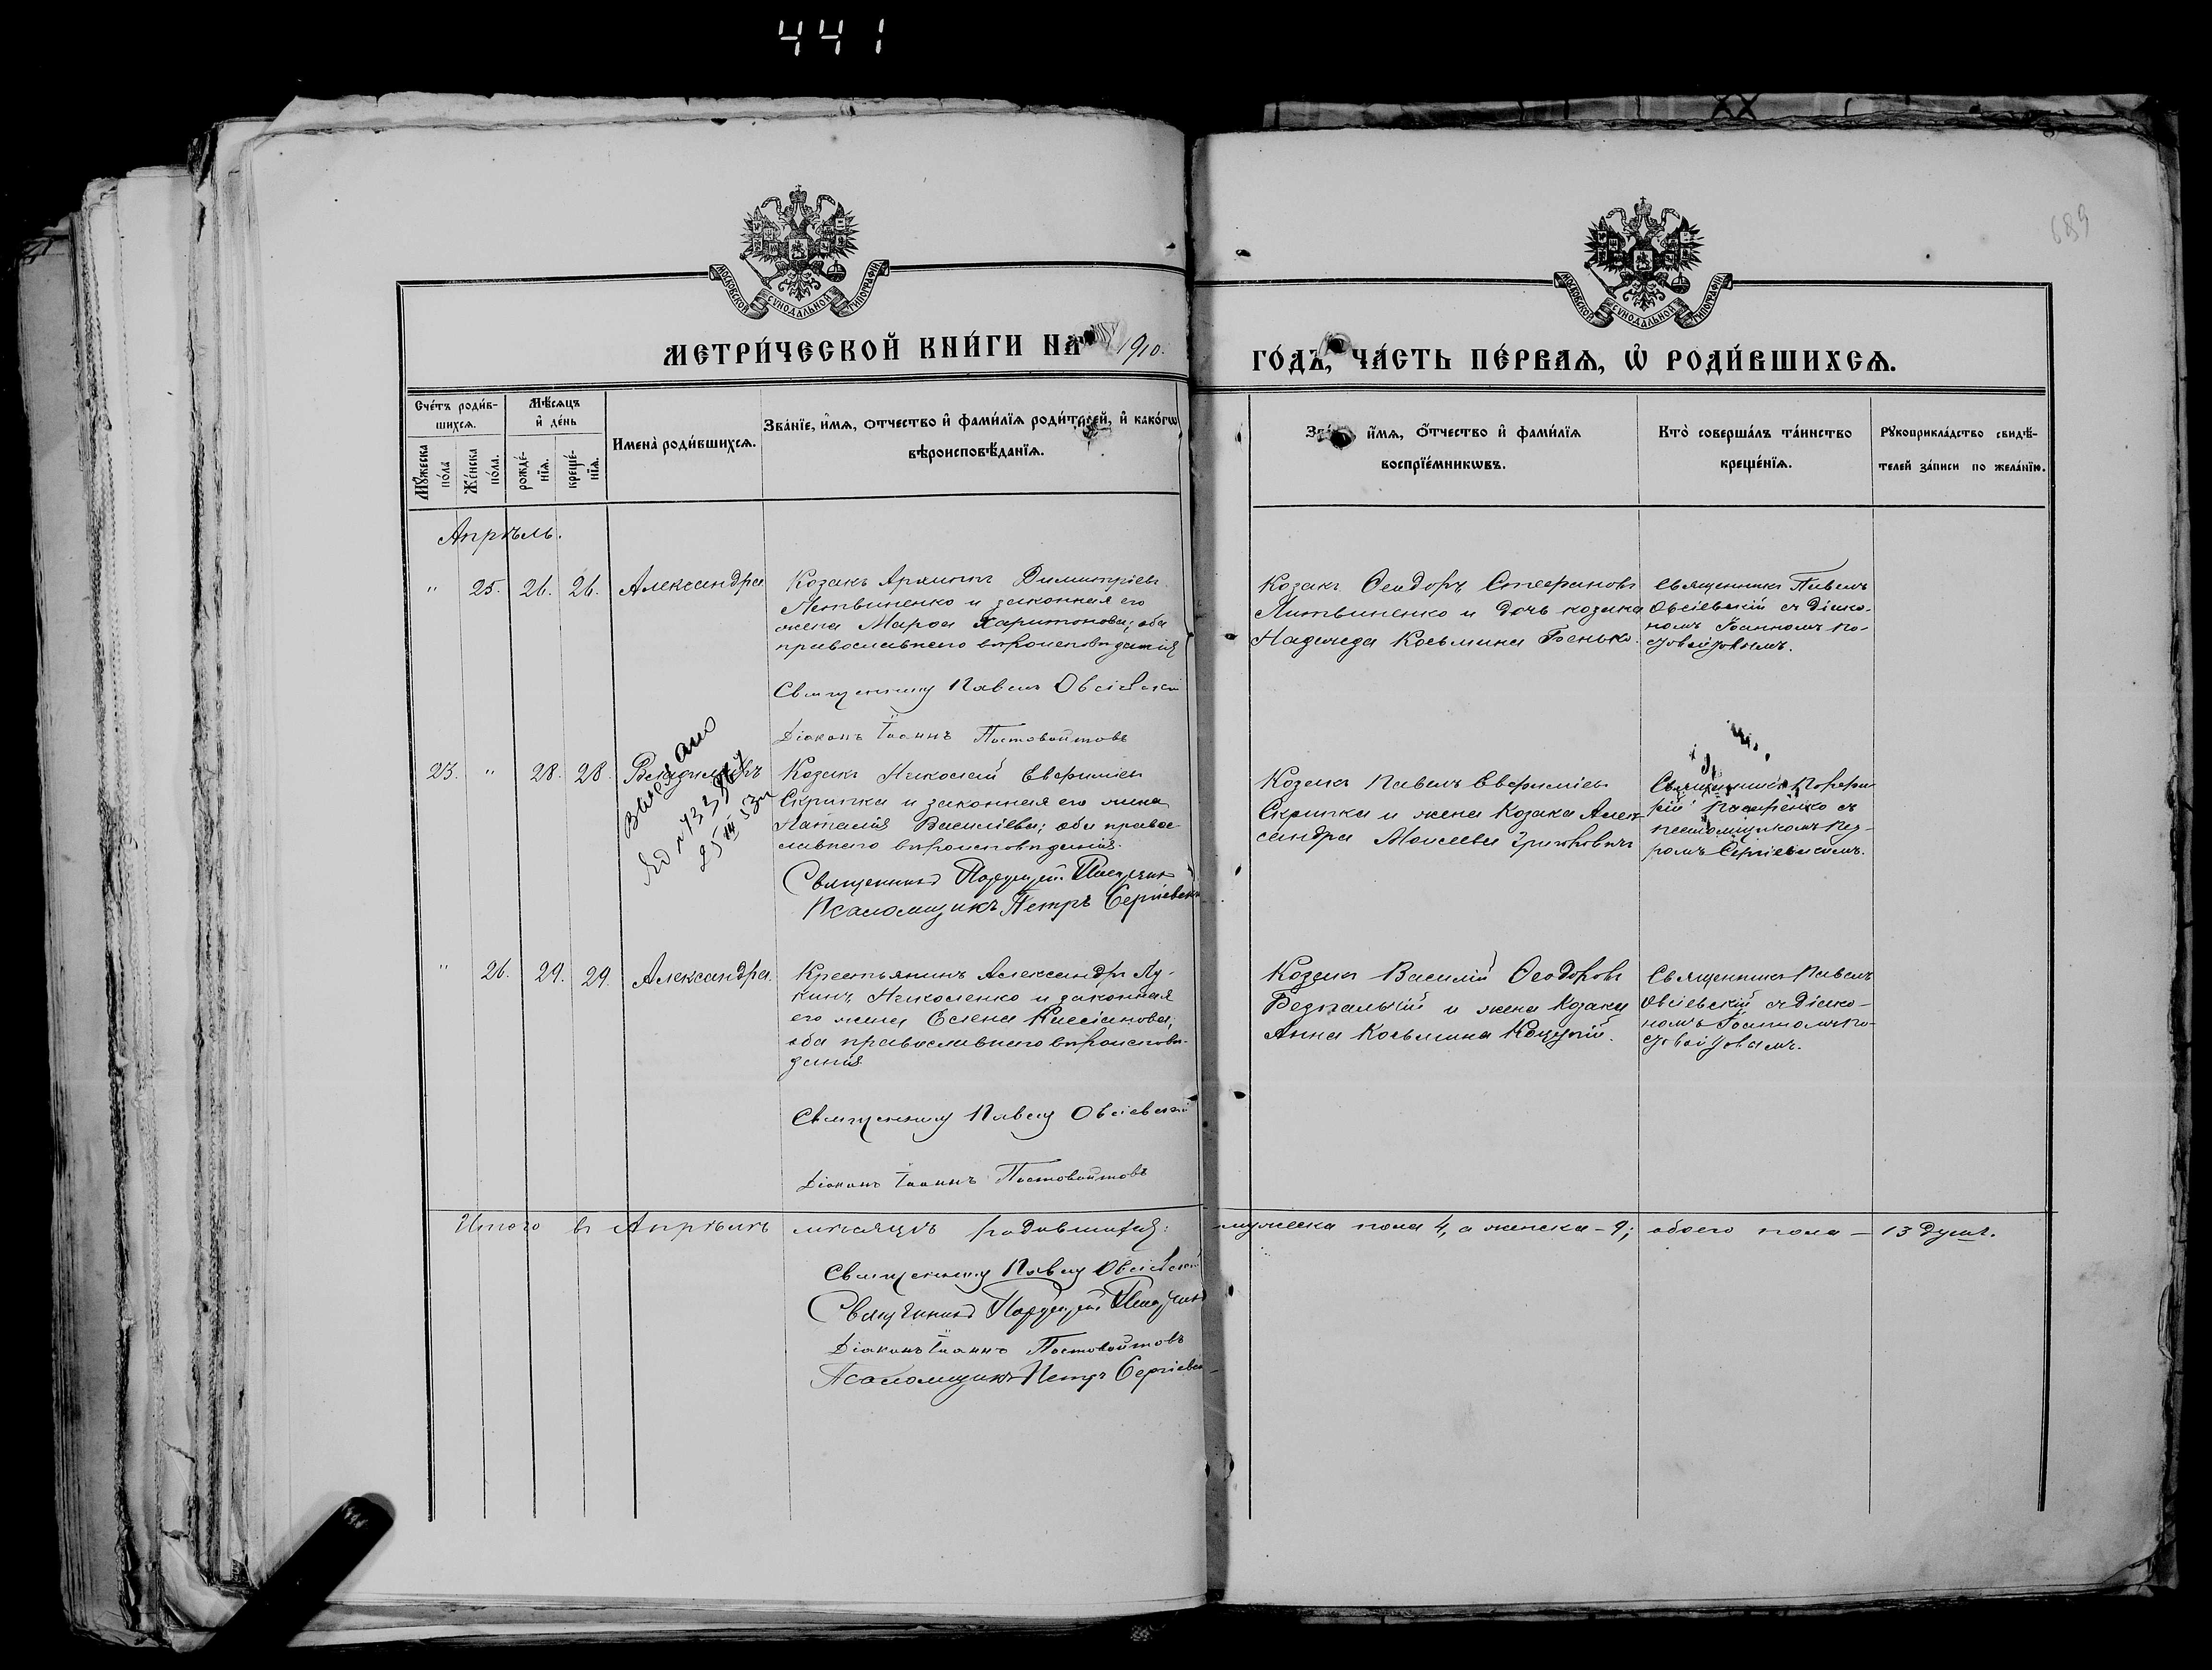 441
689
МОСКОВСКОЙ СѴНОДАЛЬНОЙ ТИПОГРАФІИ
МОСКОВСКОЙ СѴНОДАЛЬНОЙ ТИПОГРАФІИ
МЕТРИ́ЧЕСКОЙ КНИ́ГИ НА 1910.
ГО́ДЪ, ЧА́СТЬ ПЕ́РВАѦ, Ѽ РОДИ́ВШИХСѦ.
Сче́тъ роди́в-
шихсѧ.
Мѣ́сѧцъ
и҆ де́нь
Мꙋ́жеска
по́ла
Же́нска
по́ла.
рожде́-
нїѧ.
креще́-
нїѧ.
Имена̀ роди́вшихсѧ.
Зва́нїе, и҆́мѧ, ѻтчество и҆ фами́лїѧ роди́телей, и҆ како́гѡ
вѣроисповѣ́данїѧ.
и҆́мѧ, ѻ҆́тчество и҆ фами́лїѧ
воспрїе́мникѡвъ.
Кто̀ соверша́лъ та́инство
креще́нїѧ.
Рꙋкоприкла́дство свидѣ́-
телей за́писи по жела́нїю.
Апрѣль.
" 25. 26. 26. Александра
Козакъ Димитріевъ
Литвиненко и законная его
жена Марѳа Харитонова; оба
православнаго вѣроисповѣданія
Священникъ Павелъ Овсіевскій
Діаконъ Іоаннъ Постовойтовъ
Козакъ Ѳеодоръ Стефановъ
Литвиненко и дочь козака
Надежда Косьмина Бенько.
Священникъ Павелъ
Овсіевскій съ діако-
номъ Іоанномъ По-
стовойтовымъ.
23. " 28. 28. Владиміръ
Выдано
25 III 53
Козакъ Николай Евфиміевъ
Скрипка и законная его жена
Наталія Василіева; оба право-
славнаго вѣроисповѣданія.
Священникъ Порфирій
Псаломщикъ Петръ Сергіевскій
Козакъ Павелъ Евфиміевъ
Скрипка и жена козака Алек-
сандра Моисеева
Священникъ Порфи-
рій съ
псаломщикомъ Пет-
ромъ Сергіевскимъ.
" 26. 29. 29. Александра.
Крестьянинъ Александръ Лу-
кинъ Николенко и законная
его жена Елена Кассіанова;
оба православнаго вѣроисповѣ-
данія
Священникъ Павелъ Овсіевскій
Діаконъ Іоаннъ Постовойтовъ
Козакъ Василій Ѳеодоровъ
Безпалый и жена козака
Анна Косьмина
Священникъ Павелъ
Овсіевскій съ діако-
номъ Іоанномъ По-
стовойтовымъ.
Итого въ Апрѣлѣ мѣсяцѣ родившихся: мужеска пола 4, а женска - 9; обоего пола - 13 душъ.
Священникъ Павелъ Овсіевскій
Священникъ Порфирій
Діаконъ Іоаннъ Постовойтовъ
Псаломщикъ Петръ Сергіевскій